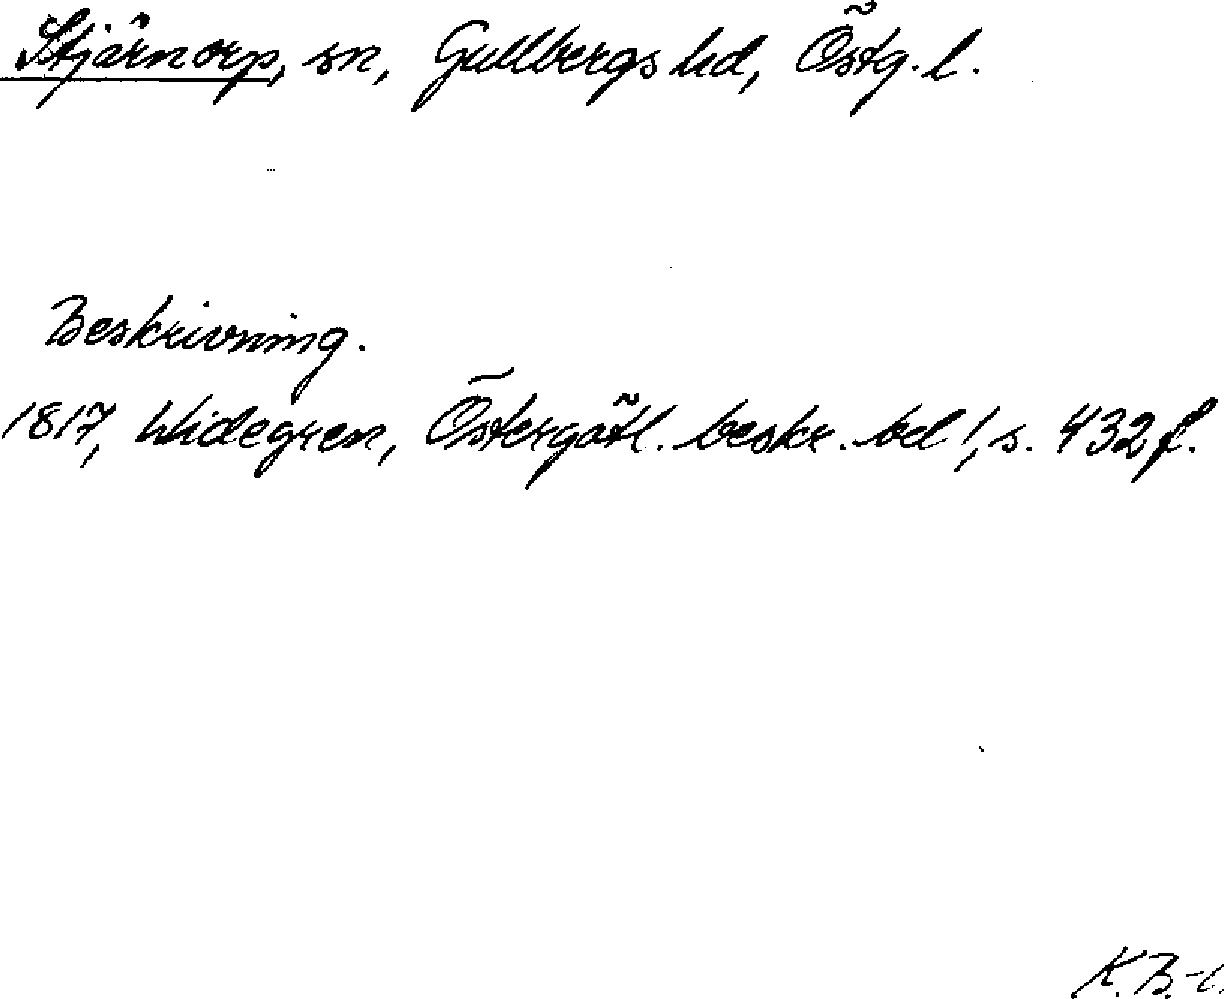 Stjärnorp, sn, Gullbergs hd, Östg. l.
Beskrivning.
1817, Widegren, Östergötl. beskr. bd 1, s. 432 f.
K. B.-